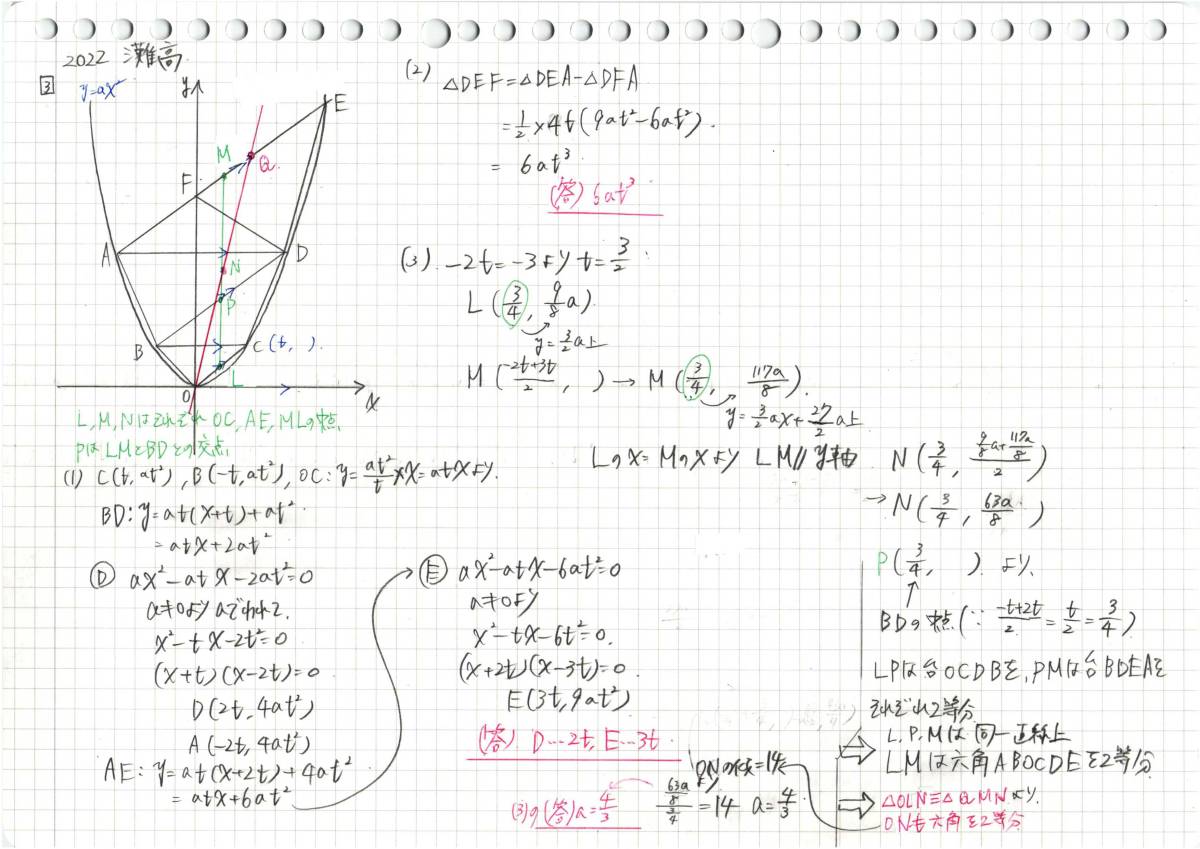 2022 灘高
3
y=ax²
y
E
M
Q
F
A
D
N
P
B
C(t, )
L
O
x
L,M,NはそれぞれOC,AE,MLの中点
PはLMとBDとの交点
(1) C(t,at²), B(-t,at²), OC:y=at²/t×x=atxより.
BD:y=at(x+t)+at²
=atx+2at²
D ax²-atx-2at²=0
a≠0よりaでわって.
x²-tx-2t²=0
(x+t)(x-2t)=0
D(2t,4at²)
A(-2t,4at²)
AE:y=at(x+2t)+4at²
=atx+6at²
E ax²-atx-6at²=0
a≠0より
x²-tx-6t²=0.
(x+2t)(x-3t)=0
E(3t,9at²)
(答) D…2t, E…3t
(2) △DEF=△DEA-△DFA
=1/2×4t(9at²-6at²).
= 6at³
(答) 6at³
(3). -2t=-3より t=3/2
L(3/4, 9/8a)
y=3/2a上
M(-2t+3t/2, )→M(3/4, 117a/8).
y=3/2ax+27/2a上
Lのx=Mのxより LM//y軸
N(3/4, 9/8a+117a/8/2)
→N(3/4, 63a/8)
P(3/4, ) より、
BDの中点(∵ -t+2t/2=t/2=3/4)
LPは台OCDBを,PMは台BDEAを
それぞれ2等分
L,P,Mは同一直線上
LMは六角ABOCDEを2等分
△OLN≡△QMNより.
ONも六角を2等分
ONの傾=14より
63a/8/3/4=14 a=4/3
(3)の(答)a=4/3